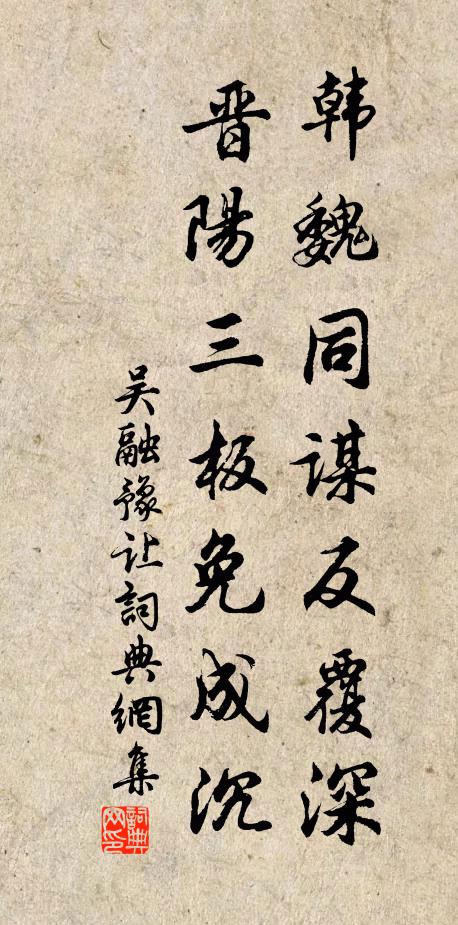 韩魏同谋反覆深
晋陽三板免成沉
吴融豫让詞典網集
詞典网印